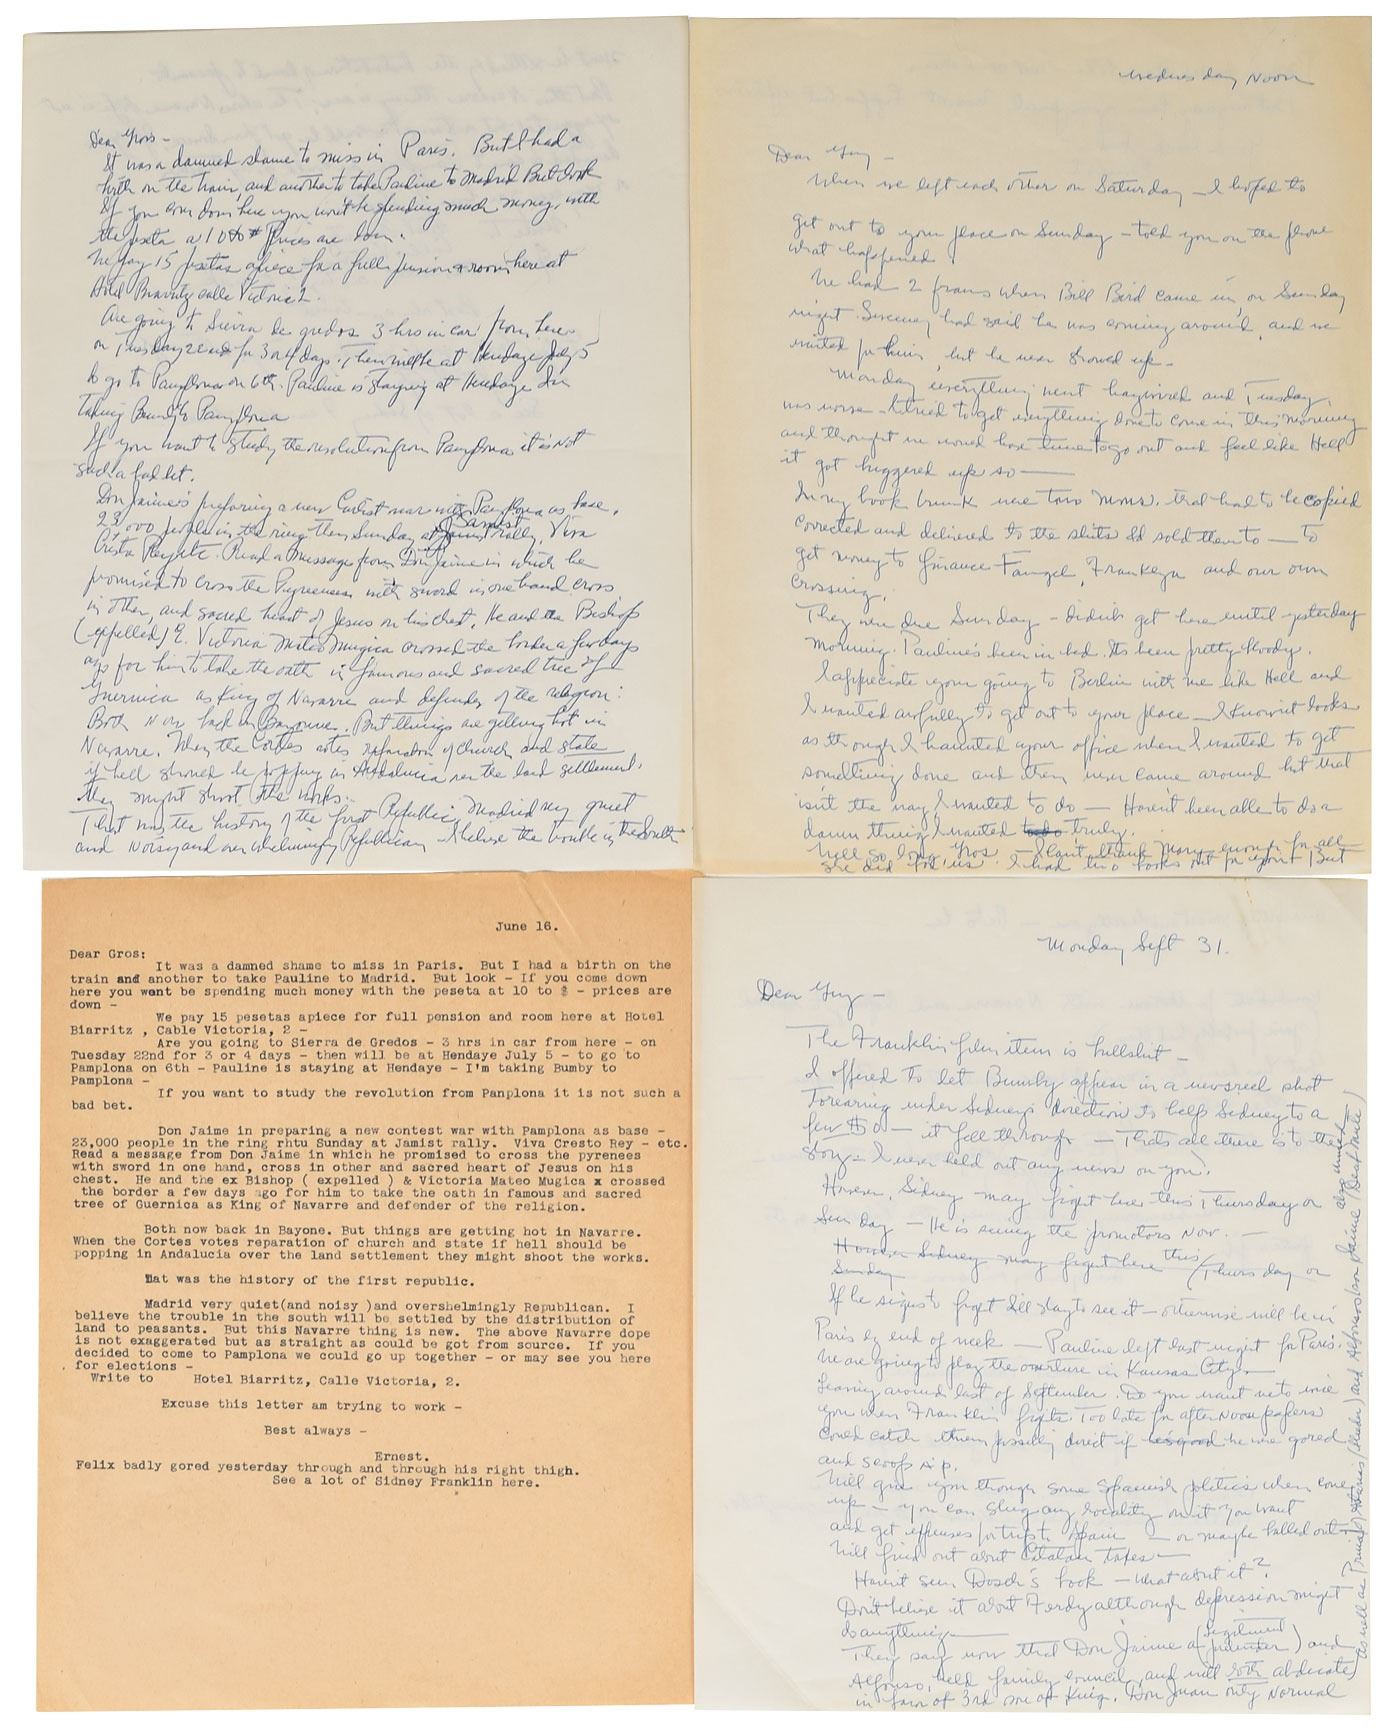 Dear Gros -
It was a damned shame to miss in Paris. But I had a
birth on the train, and another to take Pauline to Madrid But look
If you come down here you won't be spending much money, with
the peseta at 10 to $ Prices are down.
We pay 15 pesetas apiece for a full pension & room here at
Hotel Biarritz calle Victoria 2.
Are going to Sierra de gredos 3 hrs in car from here
on Tuesday 22nd for 3 or 4 days. Then will be at Hendaye July 5
to go to Pamplona on 6th. Pauline is staying at Hendaye Im
taking Bumby to Pamplona
If you want to study the revolution from Pamplona it is not
such a bad bet.
Don Jaime's preparing a new Carlist war with Pamplona as base.
23,000 people in the ring there Sunday at Jaimist rally. Viva
Cristo Rey etc. Read a message from Don Jaime in which he
promised to cross the Pyrenees with sword in one hand, cross
in other, and sacred heart of Jesus on his chest. He and the Bishop
(expelled) of Victoria Mateo Mugica crossed the border a few days
ago for him to take the oath in famous and sacred tree of
Guernica as King of Navarre and defender of the religion:
Both now back in Bayonne. But things are getting hot in
Navarre. When the Cortes votes separation of church and state
if hell should be popping in Andalucia over the land settlement,
they might shoot the works.
That was the history of the first Republic. Madrid very quiet
and noisy and overwhelmingly Republican - I believe the trouble in the South
Wednesday Noon
Dear Guy -
When we left each other on Saturday - I hoped to
get out to your place on Sunday - told you on the phone
what happened.
We had 2 francs when Bill Bird came in, on Sunday
night. Sweeney had said he was coming around and we
waited for him, but he never showed up -
Monday everything went haywired and Tuesday,
was worse - tried to get everything done to come in this morning
and thought we would have time to go out and feel like Hell
it got buggered up so -
In my book trunk were two mms. that had to be copied
corrected and delivered to the shits I'd sold them to - to
get money to finance Fangel, Frankeya and our own
crossing.
They were due Sunday - didn't get here until yesterday
morning. Pauline's been in bed. Its been pretty bloody.
I appreciate your going to Berlin with me like Hell and
I wanted awfully to get out to your place - I know it looks
as though I haunted your office when I wanted to get
something done and then never came around but that
isn't the way I wanted to do - Haven't been able to do a
damn thing I wanted to do truly.
Well so long, Gros - I can't thank Mary enough for all
she did for us. I had two books out for you But
June 16.
Dear Gros:
It was a damned shame to miss in Paris. But I had a birth on the
train and another to take Pauline to Madrid. But look - If you come down
here you wont be spending much money with the peseta at 10 to $ - prices are
down -
We pay 15 pesetas apiece for full pension and room here at Hotel
Biarritz , Cable Victoria, 2 -
Are you going to Sierra de Gredos - 3 hrs in car from here - on
Tuesday 22nd for 3 or 4 days - then will be at Hendaye July 5 - to go to
Pamplona on 6th - Pauline is staying at Hendaye - I'm taking Bumby to
Pamplona -
If you want to study the revolution from Panplona it is not such a
bad bet.
Don Jaime in preparing a new contest war with Pamplona as base -
23,000 people in the ring rhtu Sunday at Jamist rally. Viva Cresto Rey - etc.
Read a message from Don Jaime in which he promised to cross the pyrenees
with sword in one hand, cross in other and sacred heart of Jesus on his
chest. He and the ex Bishop ( expelled ) & Victoria Mateo Mugica x crossed
the border a few days ago for him to take the oath in famous and sacred
tree of Guernica as King of Navarre and defender of the religion.
Both now back in Bayone. But things are getting hot in Navarre.
When the Cortes votes reparation of church and state if hell should be
popping in Andalucia over the land settlement they might shoot the works.
Hat was the history of the first republic.
Madrid very quiet(and noisy )and overshelmingly Republican. I
believe the trouble in the south will be settled by the distribution of
land to peasants. But this Navarre thing is new. The above Navarre dope
is not exaggerated but as straight as could be got from source. If you
decided to come to Pamplona we could go up together - or may see you here
for elections -
Write to Hotel Biarritz, Calle Victoria, 2.
Excuse this letter am trying to work -
Best always -
Ernest.
Felix badly gored yesterday through and through his right thigh.
See a lot of Sidney Franklin here.
Monday Sept 31.
Dear Guy -
The Franklin film item is bullshit -
I offered to let Bumby appear in a newsreel shot
Torearing under Sidney's direction to help Sidney to a
few $0 - it fell through - Thats all there is to the
story - I never held out any news on you.
However, Sidney may fight here this Thursday or
Sunday - He is seeing the promotors now. -
However Sidney may fight here this Thursday or
Sunday
If he signs to fight I'll stay to see it - otherwise will be in
Paris by end of week - Pauline left last night for Paris.
We are going to play the overture in Kansas City -
Leaving around last of September. Do you want me to wire
you when Franklin fights. Too late for afternoon papers
could catch them possibly direct if he were gored
and scoop A.P.
Will give you though some Spanish politics when come
up - you can slug any locality on it you want
and get expenses for trip to Spain - or maybe balled out -
Will find out about Catalan tapes -
Haven't seen Dosch's book - what about it?
Don't believe it about Ferdy although depression might
do anything -
They say now that Don Jaime a (legitimist pretender) and
Alfonso, held family council, and will both abdicate
in favor of 3rd son of King. Don Juan only normal
as well as Prince of Asturias (bleeder) and Alfonso's son Jaime (Deaf Mute)